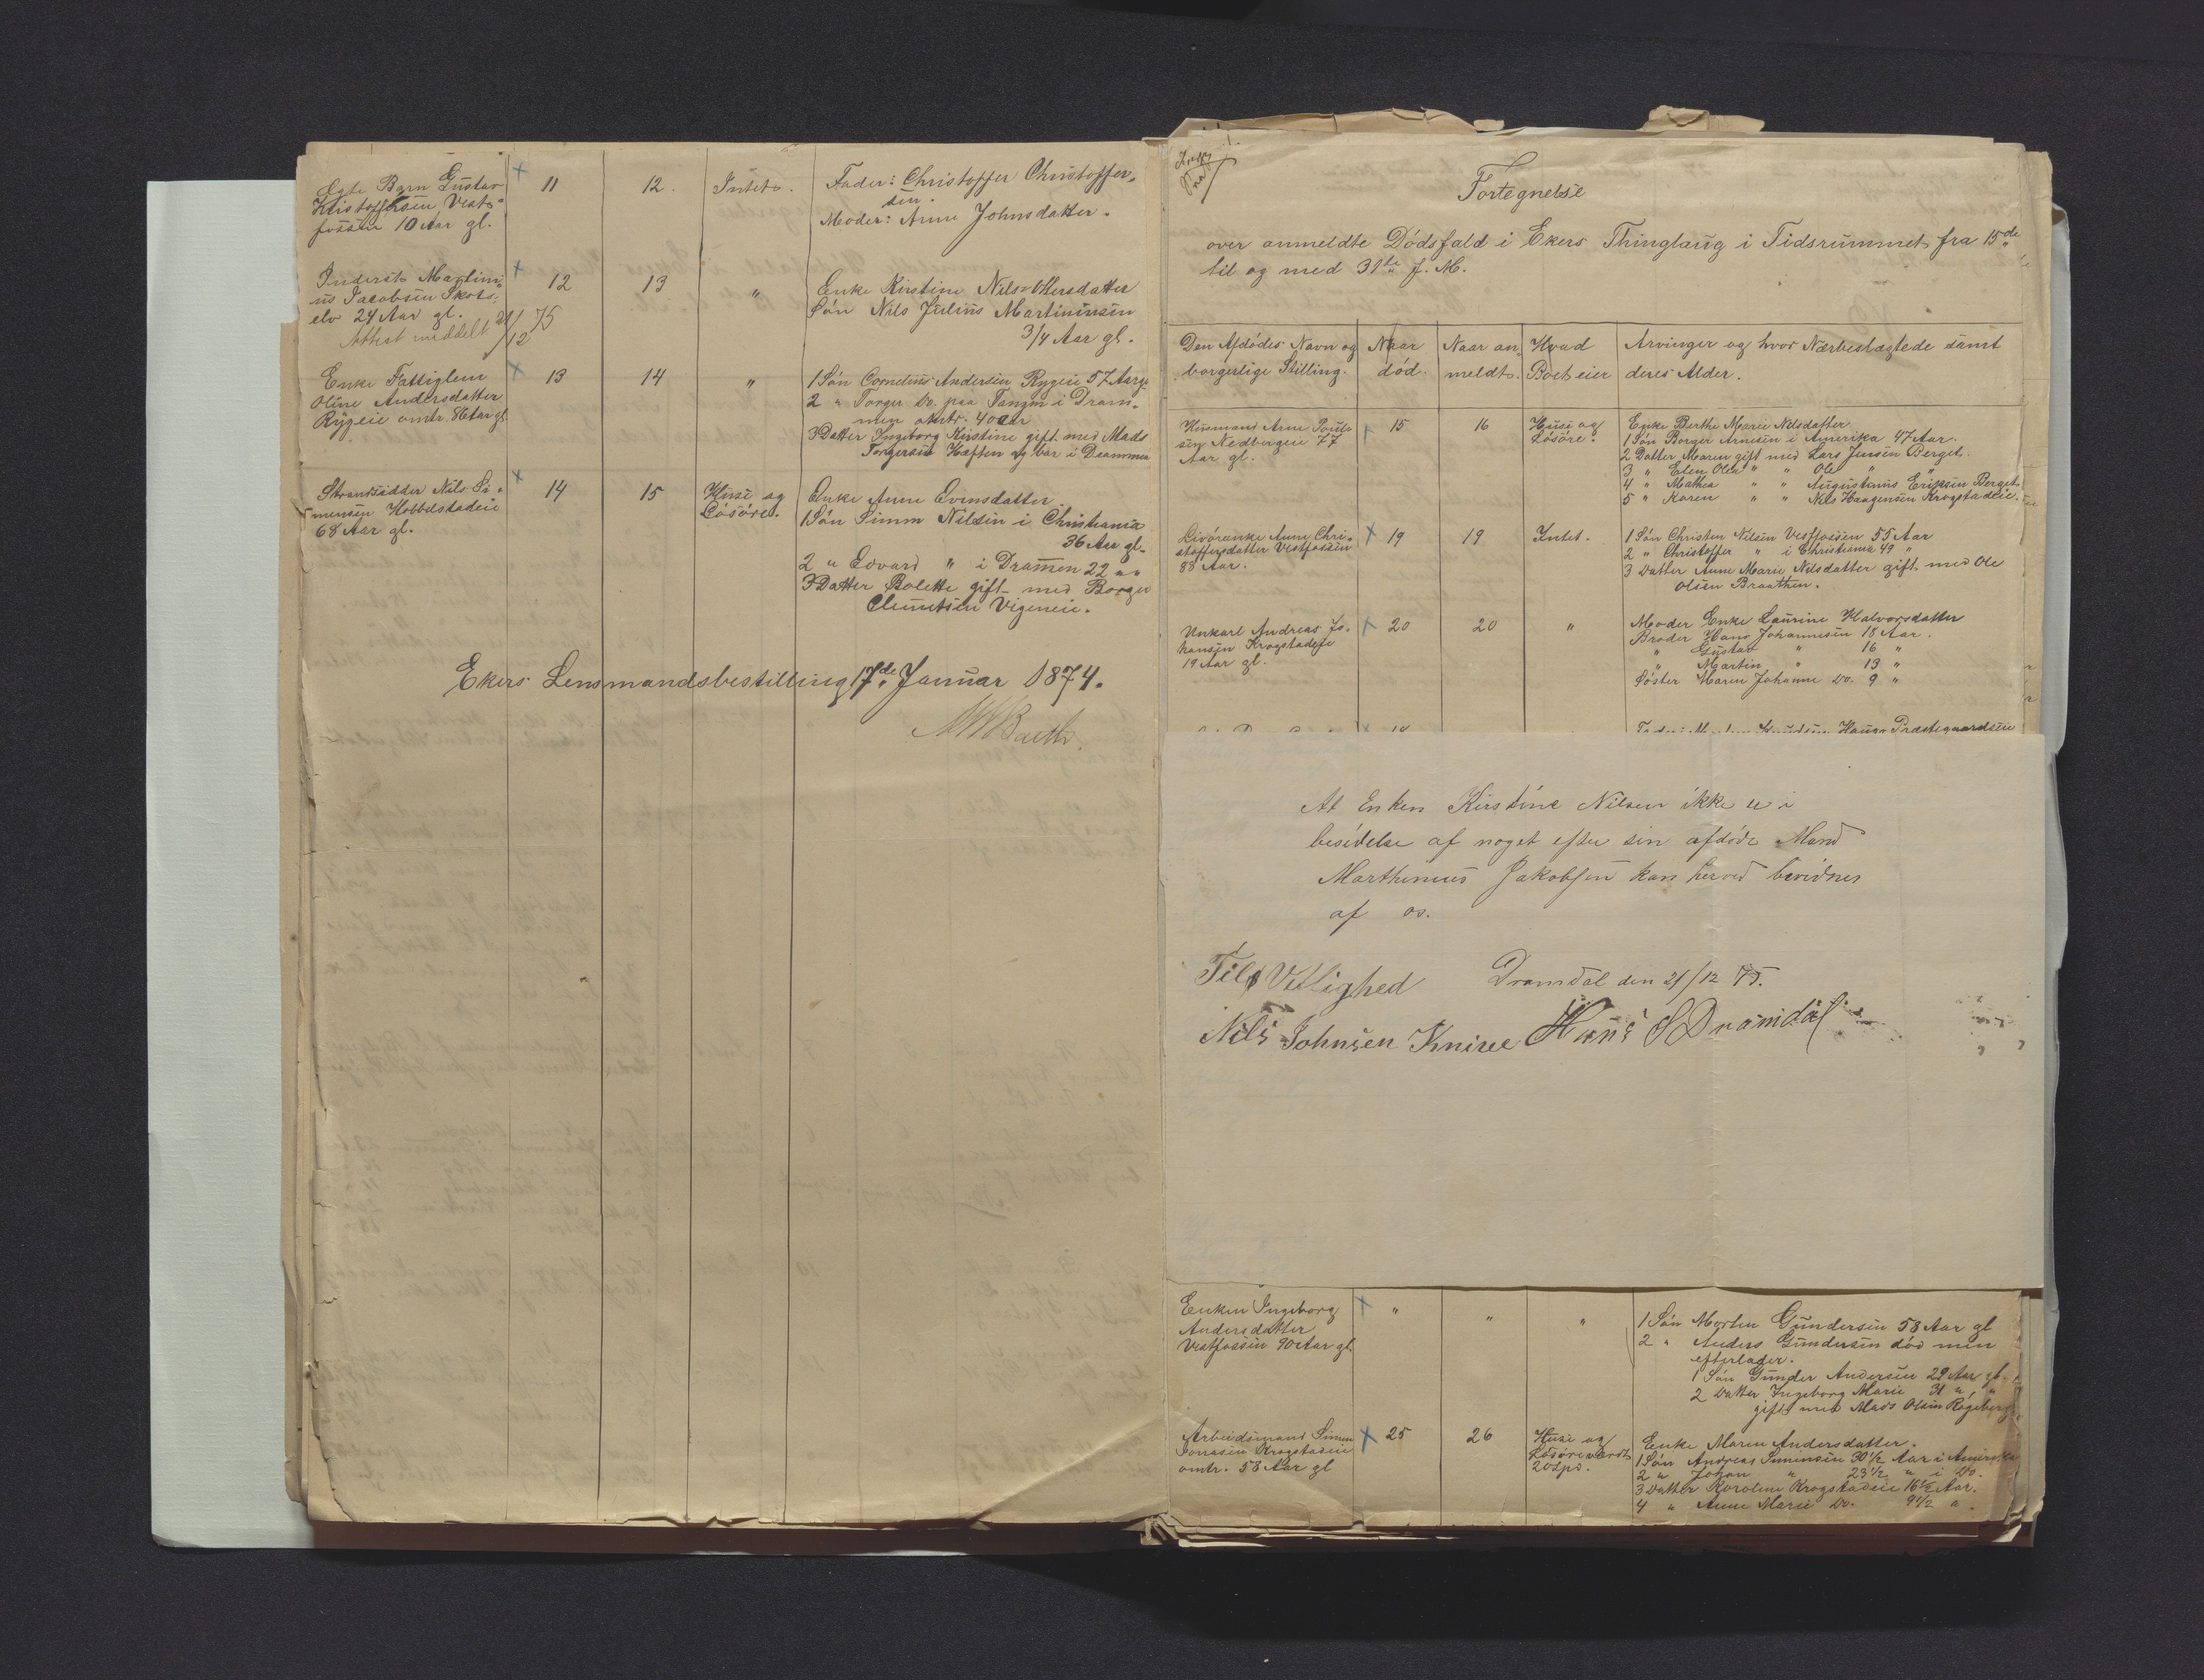 Egte Barn Gustav
Kristoffersen Vest-
fossen 10 Aar gl.
11
12.
Intet.
Fader: Christoffer Christoffer-
sen.
Moder: Anne Johnsdatter.
Inderst Martini-
us Jacobsen Skots-
elv 24 Aar gl.
Attest meddelt 21/12 75
12
13
"
Enke Kirstine Nils Ollersdatter
Søn Nils Julius Martiniusen
3/4 Aar gl.
Enke Fattiglem
Oline Andersdatter
Rygeie omtr. 86 Aar gl
13
14
"
1 Søn Cornelius Andersen Rygeie 57 Aar gl
2 " Torger Do. paa Tangen i Dram-
men omtr. 40 Aar
3 Datter Ingeborg Kirstine gift med Mads
Torgersen Haften og bor i Drammen
Strandsidder Nils Si-
mensen Hobbelstadeie
68 Aar gl.
14
15
Huse og
Løsøre.
Enke Anne Evensdatter
1 Søn Simen Nilsen i Christiania
36 Aar gl.
2 " Edvard " i Drammen 22 " "
3 Datter Bolette gift med Borger
Clemetsen Vegeneie.
Ekers Lensmandsbestilling 17de Januar 1874.
Fortegnelse
over anmeldte Dødsfald i Ekers Thinglaug i Tidsrummet fra 15de
til og med 31te f. M.
Den Afdødes Navn og
borgerlige Stilling.
Naar
død.
Naar an-
meldt.
Hvad
Boet eier
Arvinger og hvor Nærbeslægtede samt
deres Alder.
Husmand Arne Pouls-
sen Nedbergeie 77
Aar gl.
15
16
Huse og
Løsøre.
Enke Berthe Marie Nilsdatter
1 Søn Borger Arnesen i Amerika 47 Aar.
2 Datter Maren gift med Lars Jensen Berget.
3 " Elen Olea " " Ole " "
4 " Mathea " " Augustinus Eriksen Berget
5 " Karen " " Nils Haagensen Krogstadeie.
Livøreenke Anne Chri-
stoffersdatter Vestfossen
83 Aar.
19
19
Intet.
1 Søn Christen Nilsen Vestfossen 55 Aar
2 " Christoffer " i Christiania 49 "
3 Datter Anne Marie Nilsdatter gift med Ole
Olsen Braathen.
Unkarl Andreas Jo-
hansen Krogstadeie
19 Aar gl.
20
20
"
Moder Enke Laurine Halvorsdatter
Broder Hans Johannesen 18 Aar.
" Gustav " 16 "
" Martin " 13 "
Søster Maren Johanne Do. 9 "
At Enken Kirstine Nilsen ikke er i
besidelse af noget efter sin afdøde Mand
Marthinius Jakobsen kan herved bevidnes
af os.
Til Vitlighed
Dramdal den 21/12 75.
Nils Johnsen Knive Hans S Dramdal
Enken Ingeborg
Andersdatter
Vestfossen 90 Aar gl.
"
"
"
1 Søn Morten Gundersen 58 Aar gl
2 " Anders Gundersen død men
efterlader.
1 Søn Gunder Andersen 29 Aar gl.
2 Datter Ingeborg Marie 31 " "
gift med Mads Olsen Røgeberg
Arbeidsmand Simen
Jonasen Krogstadeie
omtr. 58 Aar gl
25
26
Huse og
Løsøre værdt
20 Spd.
Enke Maren Andersdatter.
1 Søn Andreas Simensen 30 1/2 Aar i Amerika
2 " Johan " 23 1/2 " i Do.
3 Datter Karoline Krogstadeie 16 1/2 Aar.
4 " Anne Marie Do. 9 1/2 ".